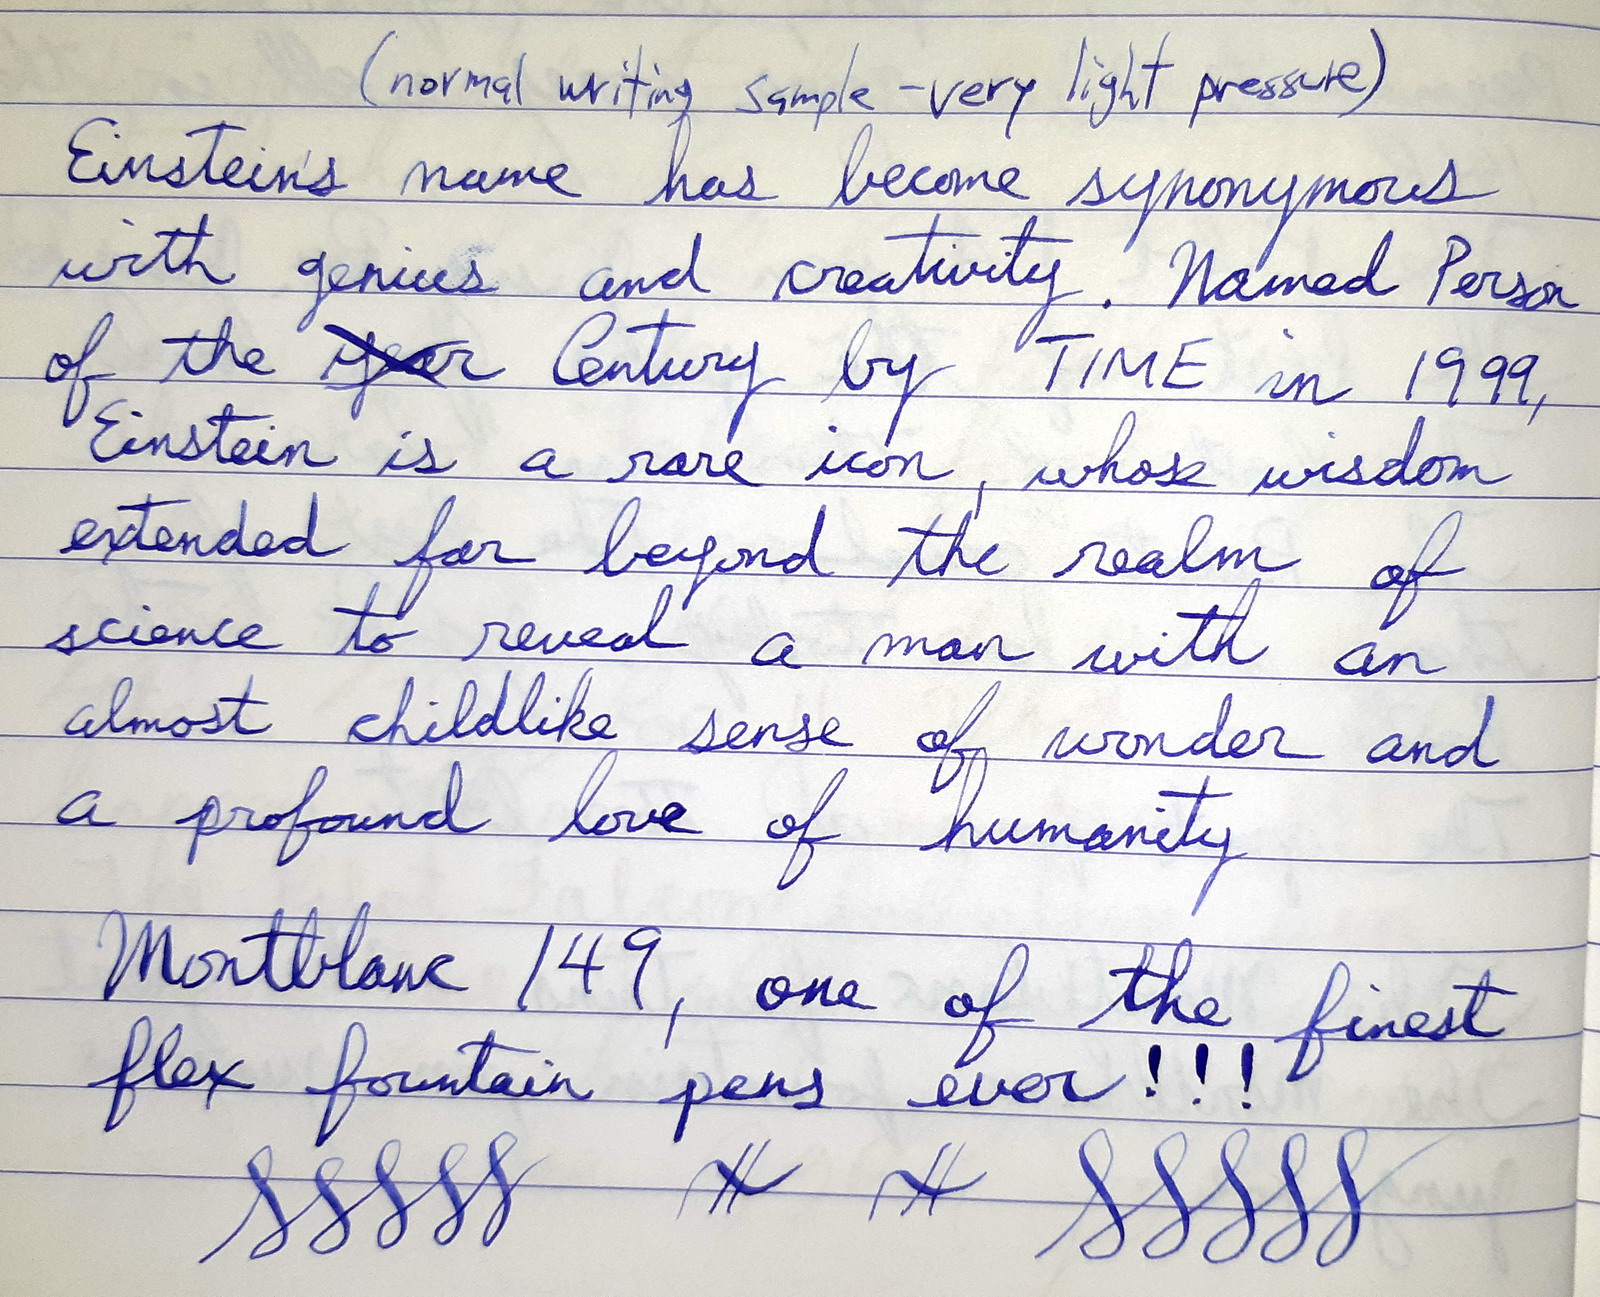 (normal writing sample - very light pressure)
Einstein's name has become synonymous
with genius and creativity. Named Person
of the year Century by TIME in 1999,
Einstein is a rare icon, whose wisdom
extended far beyond the realm of
science to reveal a man with an
almost childlike sense of wonder and
a profound love of humanity
Montblanc 149, one of the finest
flex fountain pens ever!!!